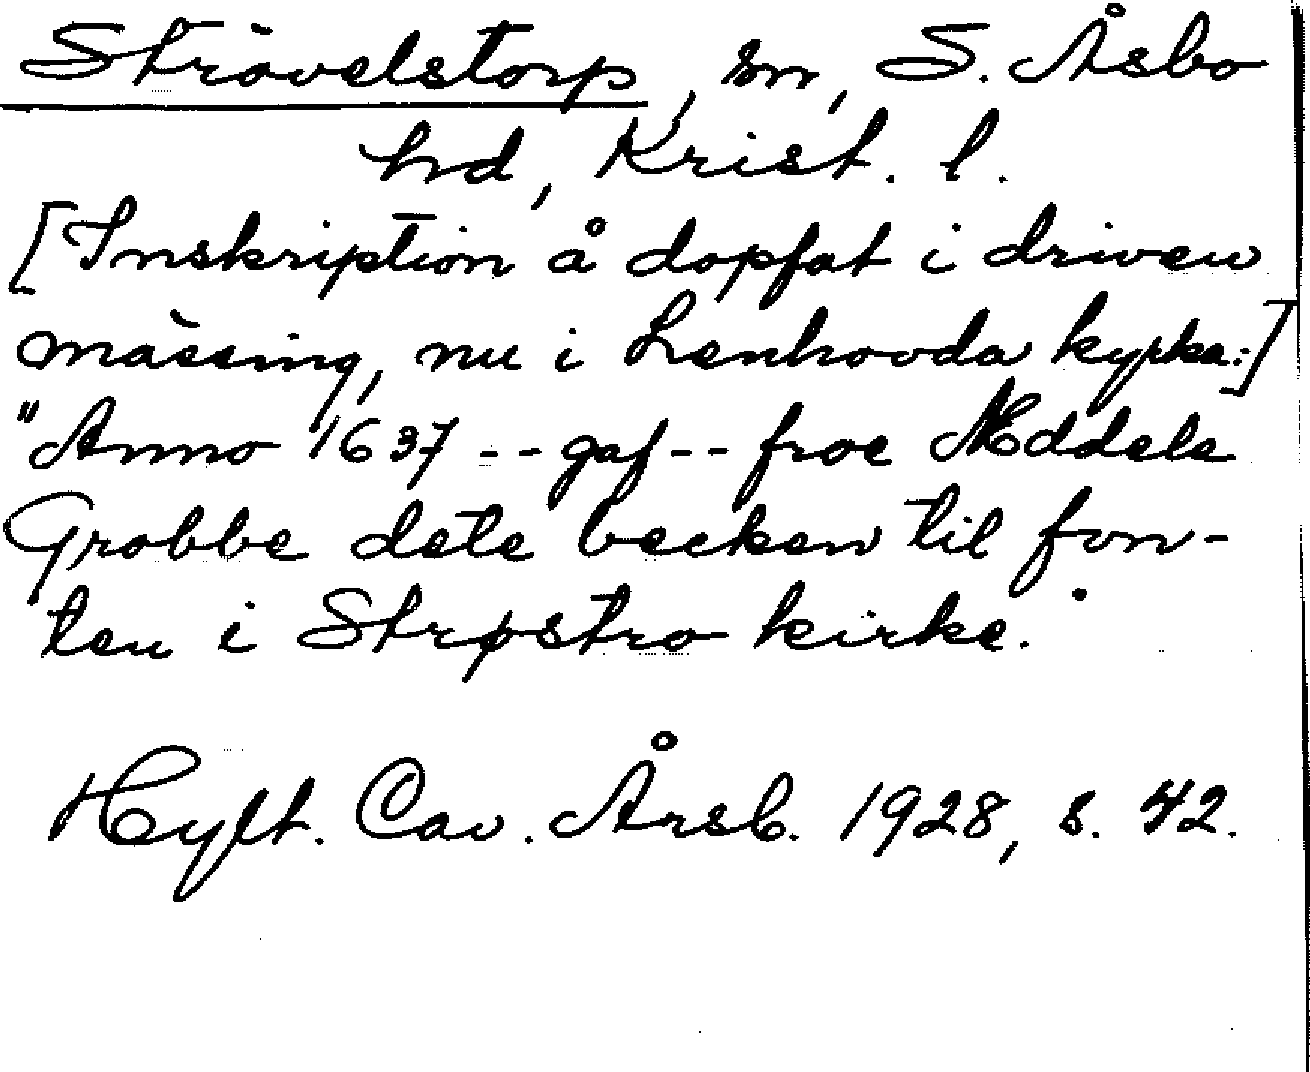 Strövelstorp, sn, S. Åsbo
hd, Krist. l.
[Inskription å dopfat i driven
mässing, nu i Lenhovda kyrka:]
"Anno 1637 -- gaf -- froe Æddele
Grobbe dete becken til fon-
ten i Strøstro kirke."
Hylt. Cav. Årsb. 1928, s. 42.